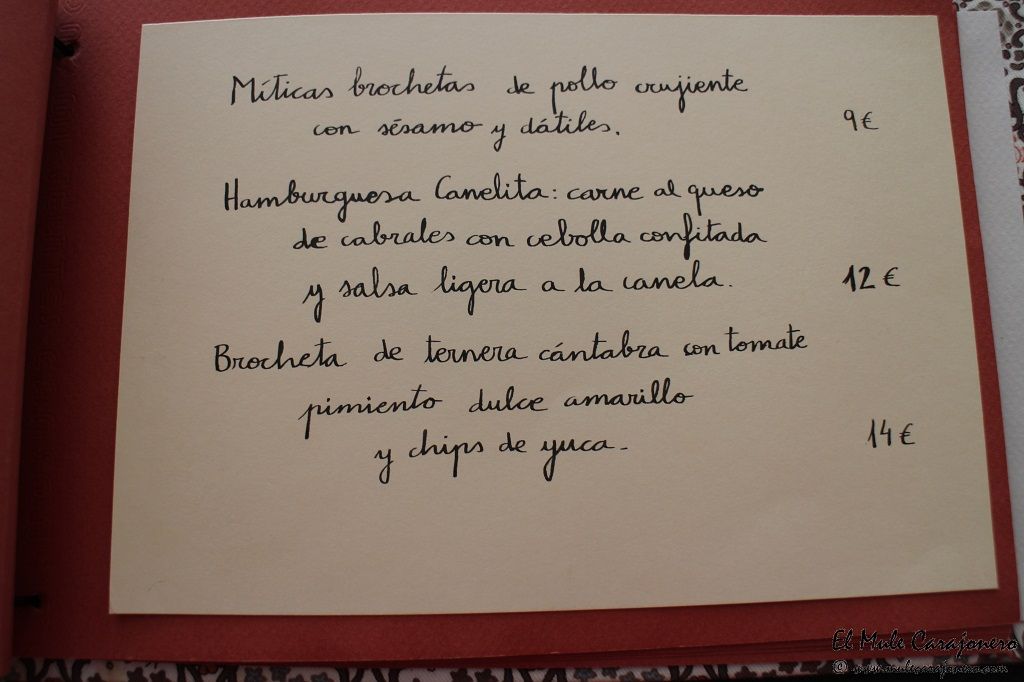 Míticas brochetas de pollo crujiente
con sésamo y dátiles. 9€
Hamburguesa Canelita: carne al queso
de cabrales con cebolla confitada
y salsa ligera a la canela. 12€
Brocheta de ternera cántabra con tomate
pimiento dulce amarillo
y chips de yuca- 14€
El Mule Carajonero
© www.mulecarajonero.com